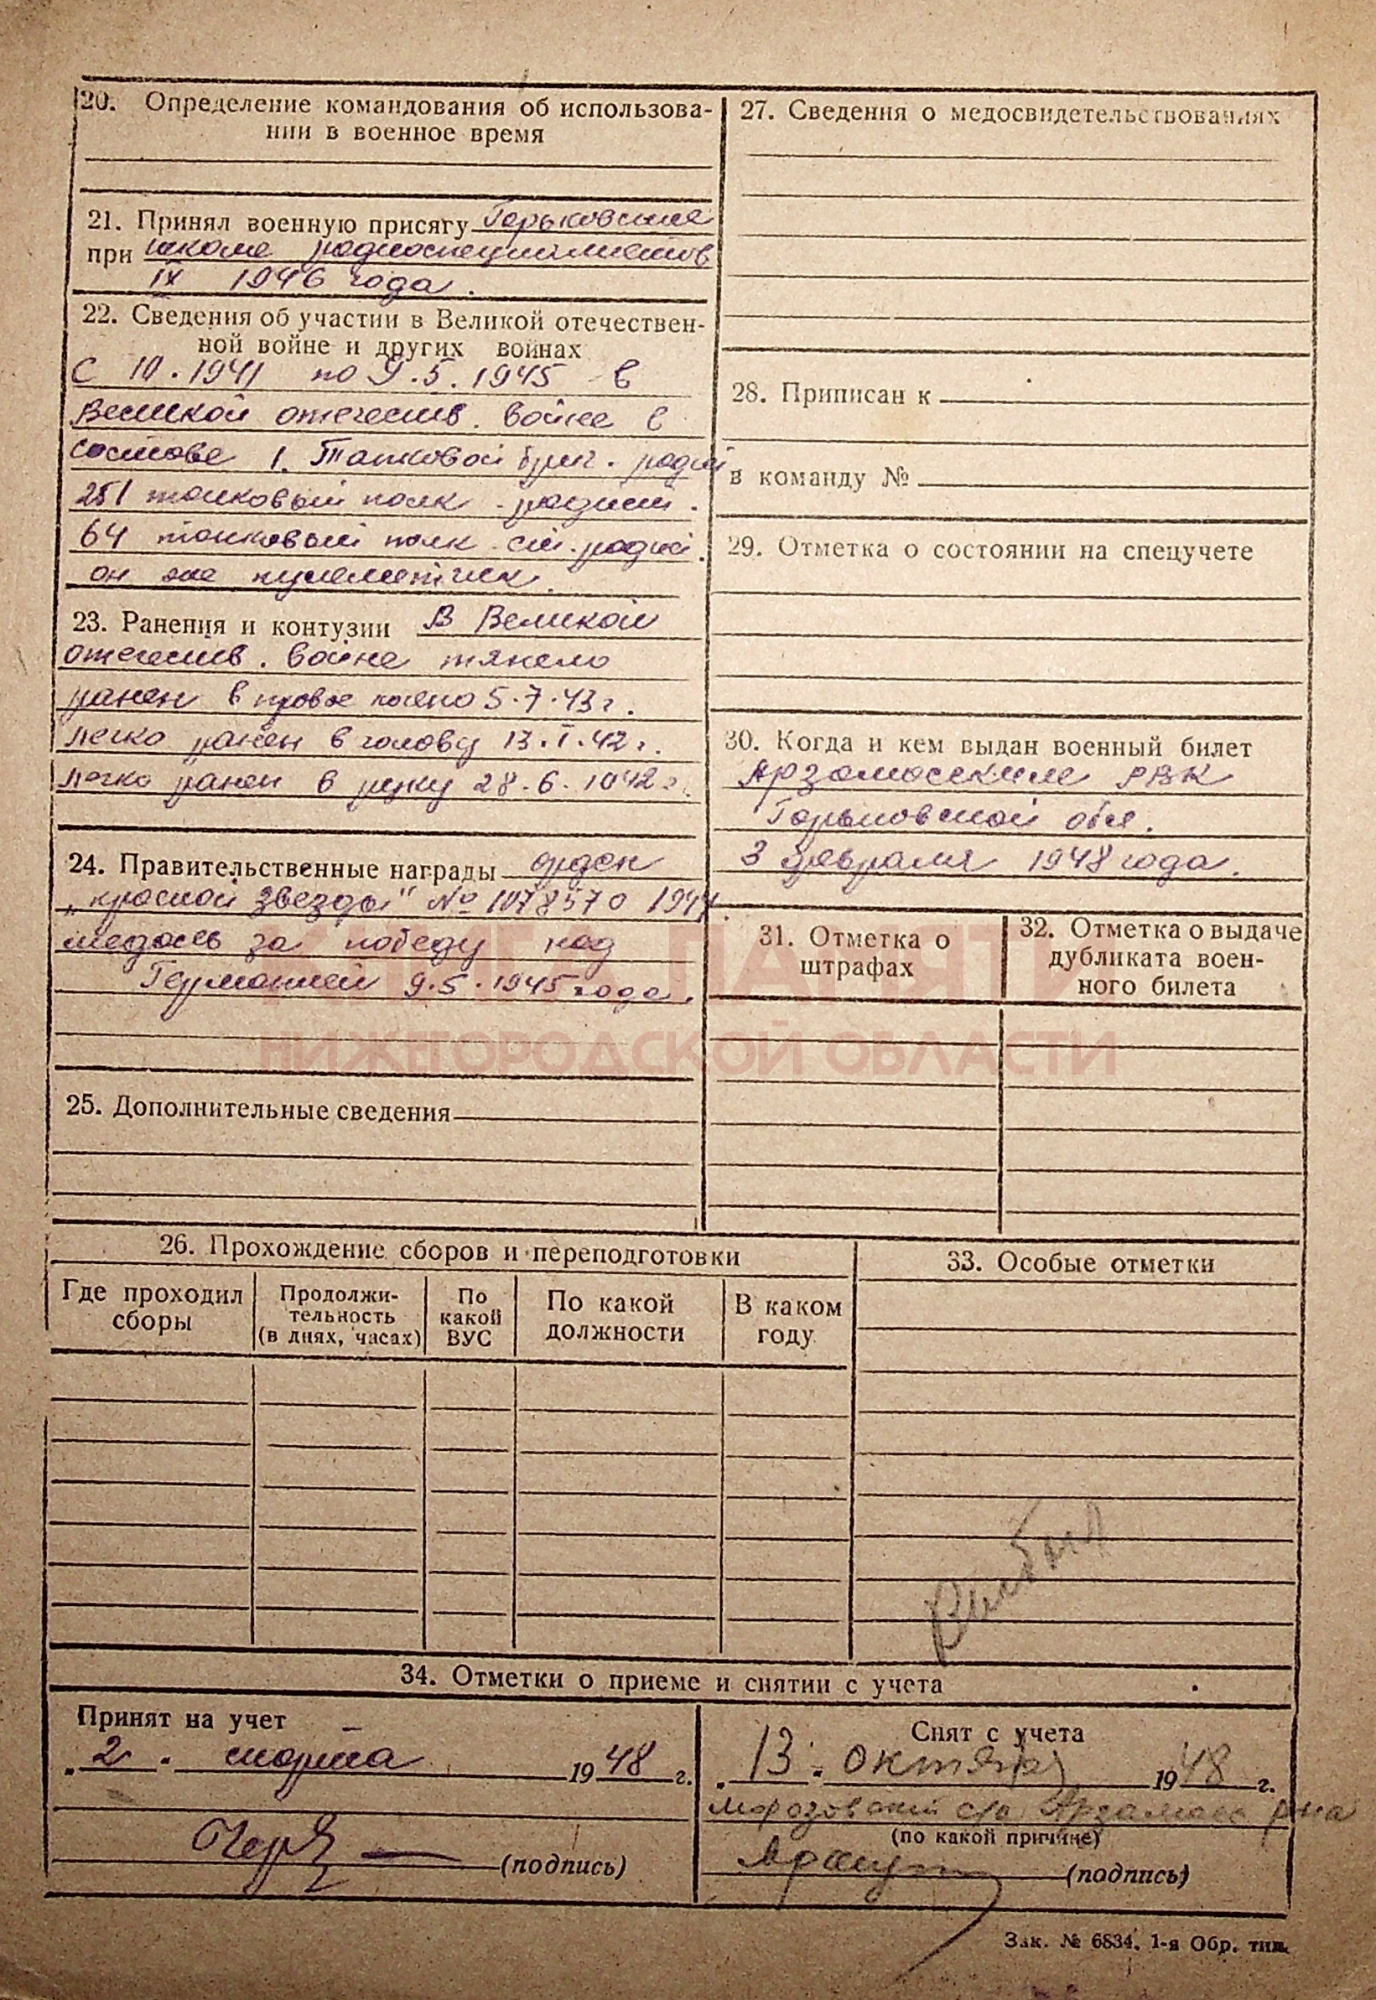 20. Определение командования об использова-
нии в военное время
21. Принял военную присягу Горьковская
при школе радиоспециалистов
IX 1946 года.
22. Сведения об участии в Великой отечествен-
ной войне и других войнах
С 10.1941 по 9.5.1945 в
Великой отечеств. войне в
составе 1. Танковой бриг. радист
251 танковый полк - радист.
64 танковый полк - ст. радист.
он же пулеметчик.
23. Ранения и контузии В Великой
отечеств. войне тяжело
ранен в правое колено 5.7.43 г.
легко ранен в голову 13.I.42 г.
легко ранен в руку 28.6.1942 г.
24. Правительственные награды орден
„красной звезды" № 1078570 1944
медаль за победу над
Германией 9.5.1945 года.
25. Дополнительные сведения
27. Сведения о медосвидетельствованиях
28. Приписан к
в команду №
29. Отметка о состоянии на спецучете
30. Когда и кем выдан военный билет
Арзамасским РВК
Горьковской обл.
3 февраля 1948 года.
31. Отметка о
штрафах
32. Отметка о выдаче
дубликата воен-
ного билета
КНИГА ПАМЯТИ
НИЖЕГОРОДСКОЙ ОБЛАСТИ
26. Прохождение сборов и переподготовки
Где проходил
сборы
Продолжи-
тельность
(в днях, часах)
По
какой
ВУС
По какой
должности
В каком
году
33. Особые отметки
Выбыл
34. Отметки о приеме и снятии с учета
Принят на учет
„2" марта 1948 г.
(подпись)
Снят с учета
„13" октября 1948 г.
Морозовский с/с Арзамасс р-на
(по какой причине)
(подпись)
Зак. № 6834. 1-я Обр. тип.